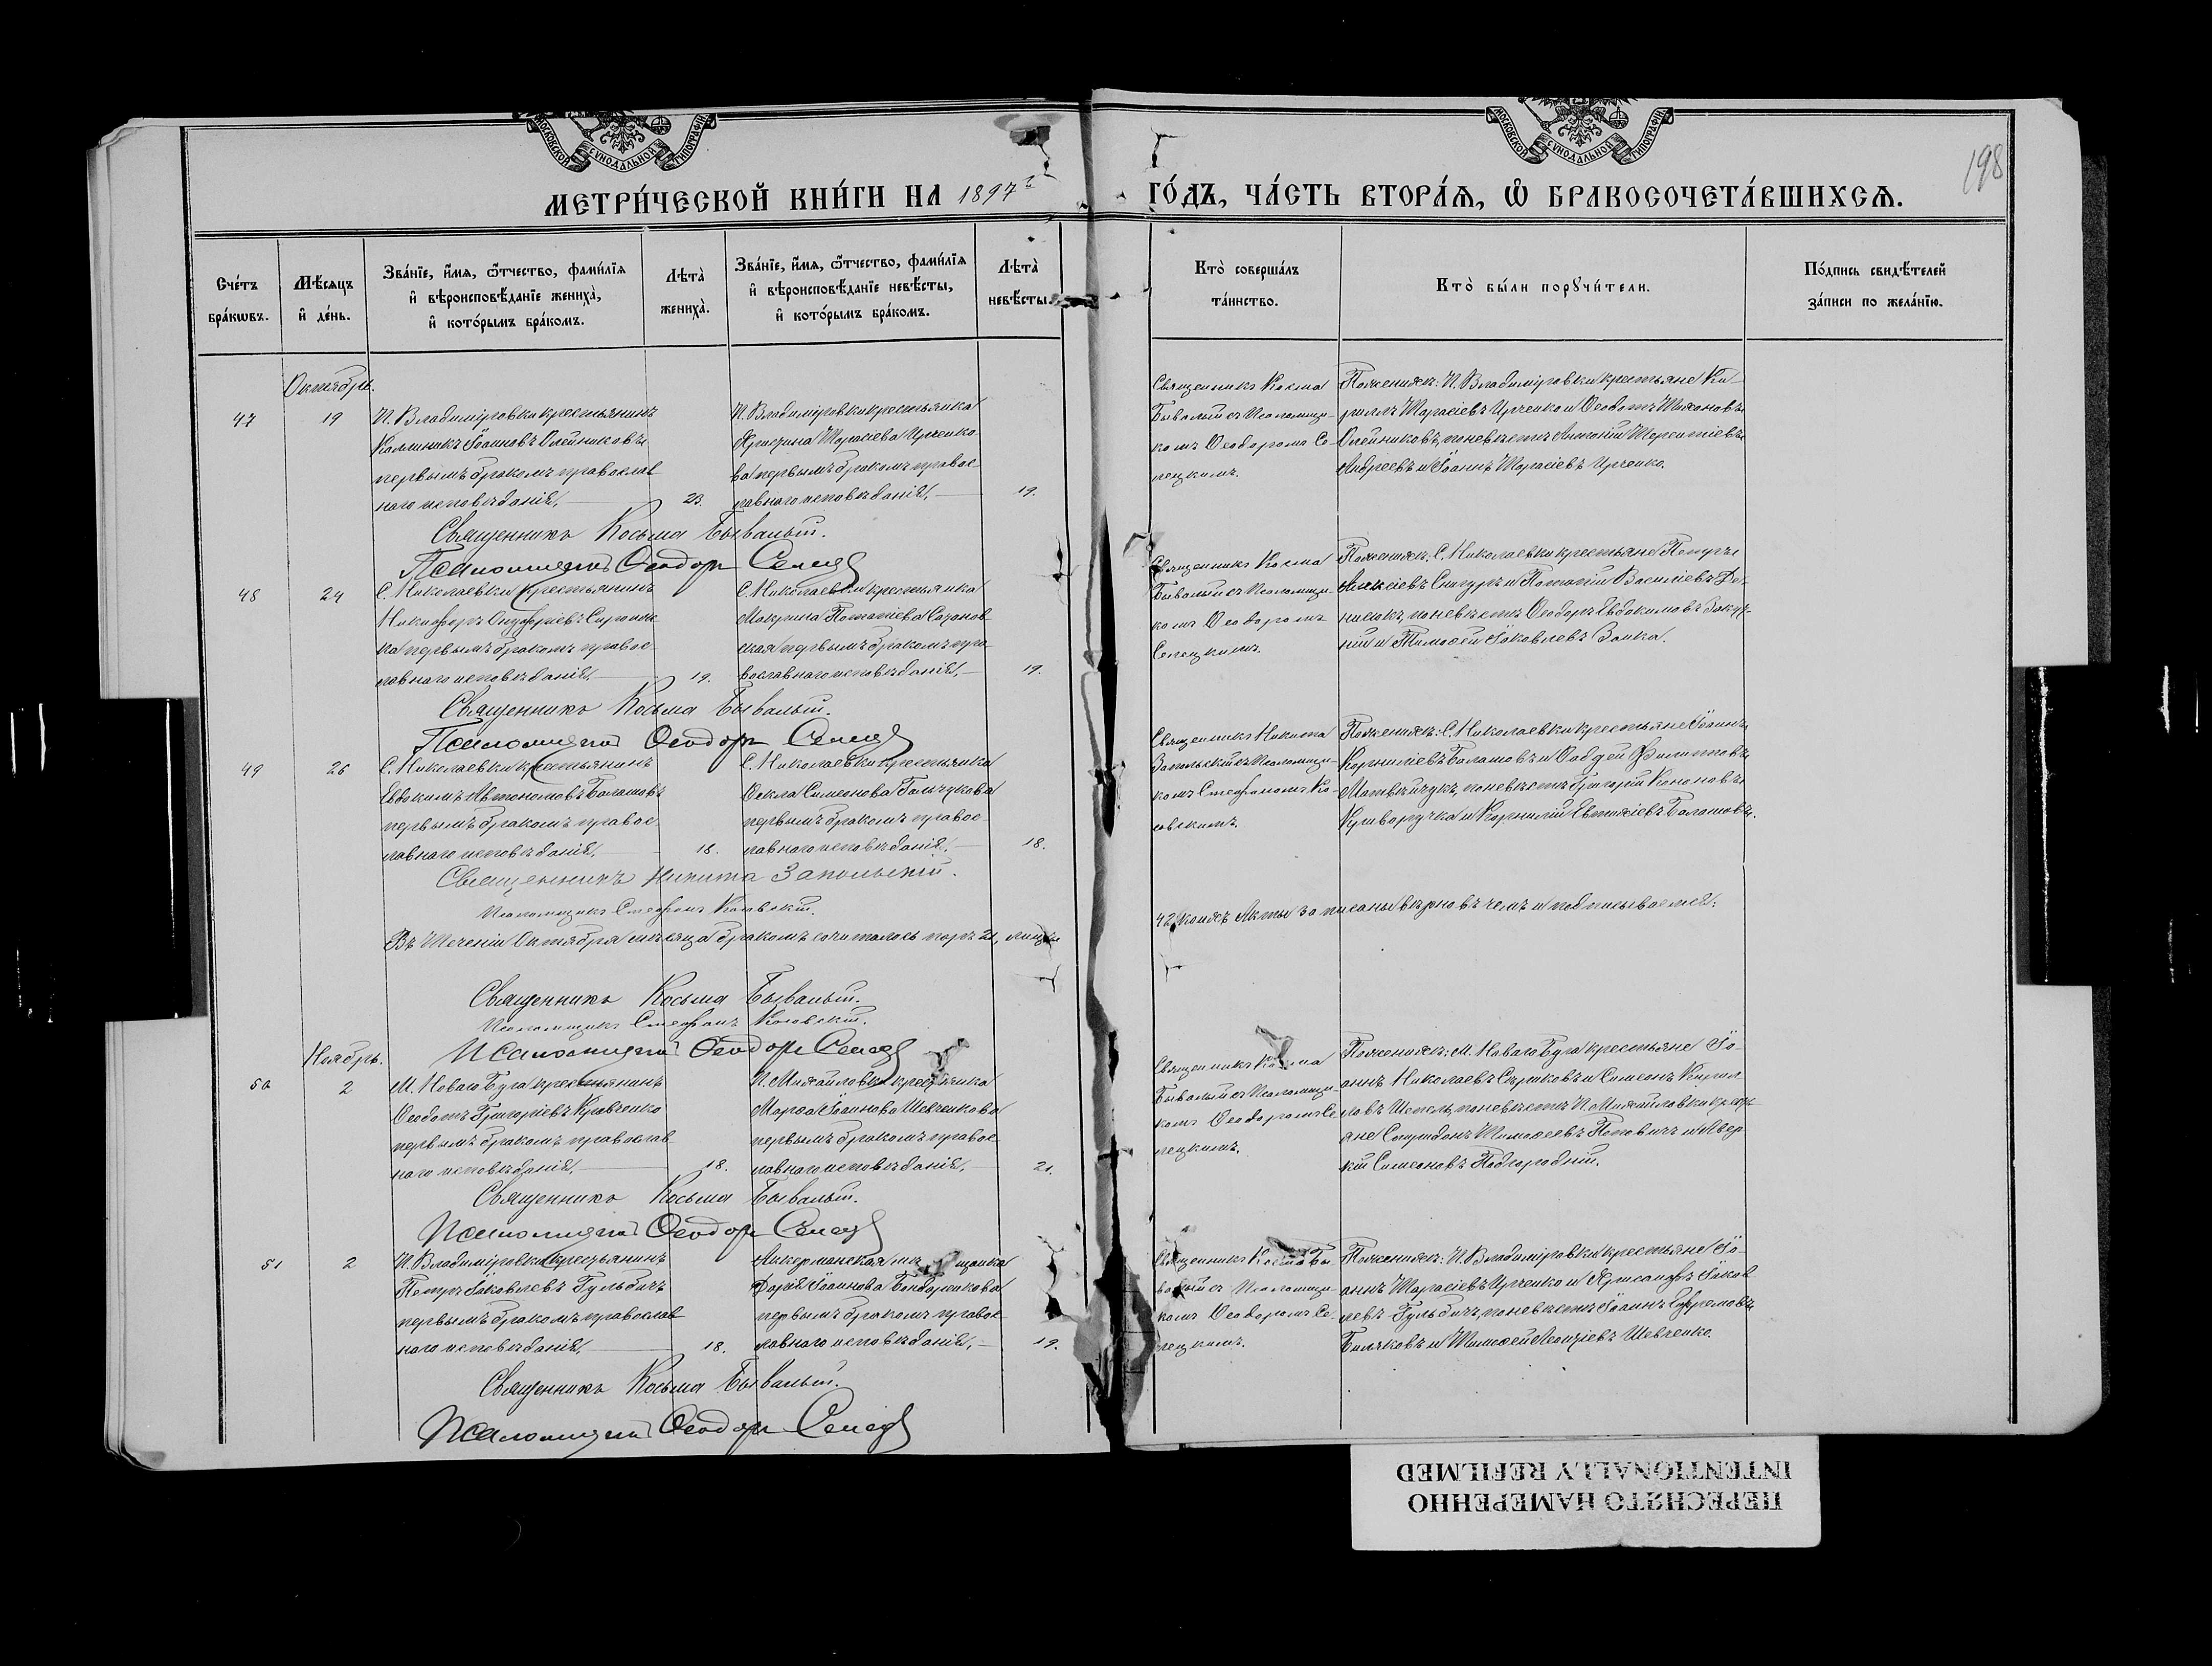 МОСКОВСКОЙ СУНОДАЛЬНОЙ ТИПОГРАФІИ
МОСКОВСКОЙ СУНОДАЛЬНОЙ ТИПОГРАФІИ
198
МЕТРИ́ЧЕСКОЙ КНИ́ГИ НА 1897 ГО́ДЪ, ЧА́СТЬ ВТОРА́Я, Ѡ БРАКОСОЧЕТА́ВШИХСЯ.
Сче́тъ бра́кѡвъ.
Мѣ́сяцъ и҆ де́нь.
Зва́нїе, и҆́мя, ѻ҆́тчество, фами́лїя
и҆ вѣроисповѣ́данїе жениха̀,
и҆ кото́рымъ бра́комъ.
Лѣта̀ жениха̀.
Зва́нїе, и҆́мя, ѻ҆́тчество, фами́лїя
и҆ вѣроисповѣ́данїе невѣ́сты,
и҆ кото́рымъ бра́комъ.
Лѣта̀ невѣ́сты.
Кто̀ соверша́лъ
та́инство.
Кто̀ бы́ли порꙋчи́тели.
По́дпись свидѣ́телей
за́писи по жела́нїю.
Октябрь.
47 19
П. Владиміровки крестьянинъ
Каллиникъ Іоанновъ Олейниковъ
первымъ бракомъ православ
наго исповѣданія, 23.
П. Владиміровки крестьянка
Христина Тарасіева Ирченко
ва первымъ бракомъ правос
лавнаго исповѣданія, 19.
Священникъ Косма
Бывалый съ Псаломщи-
комъ Ѳеодоромъ Се-
лецкимъ.
По женихѣ: П. Владиміровки крестьяне Ки-
риллъ Тарасіевъ Ирченко и Ѳеодотъ
Олейниковъ, по невѣстѣ Антоній Терентіевъ
Андреевъ и Іоаннъ Тарасіевъ Ирченко.
Священникъ Косьма Бывалый.
Псаломщикъ Ѳеодоръ Селец
48 24
С. Николаевки крестьянинъ
Никифоръ Онуфріевъ Сиротен
ка первымъ бракомъ правос
лавнаго исповѣданія, 19.
С. Николаевки крестьянка
Макрина Потапіева Сазанов
ская первымъ бракомъ пра
вославнаго исповѣданія, 19.
Священникъ Косма
Бывалый съ Псаломщи-
комъ Ѳеодоромъ
Селецкимъ.
По женихѣ: С. Николаевки крестьяне Петръ
Алексіевъ Снигуръ и Потапій Василіевъ Де-
нисюкъ, по невѣстѣ Ѳеодоръ Евдокимовъ
и Тимоѳей Іаковлевъ Заика.
Священникъ Косьма Бывалый.
Псаломщикъ Ѳеодоръ Селец
49 26
С. Николаевки крестьянинъ
Евдокимъ Автономовъ Балашовъ
первымъ бракомъ правос
лавнаго исповѣданія, 18.
С. Николаевки крестьянка
Ѳекла Симеонова Гальчукова
первымъ бракомъ правос
лавнаго исповѣданія, 18.
Священникъ Никита
Запольскій съ Псаломщи-
комъ Стефаномъ Ко-
совскимъ.
По женихѣ: С. Николаевки крестьяне Іоаннъ
Корниліевъ Балашовъ и Филипповъ
Матвейчукъ, по невѣстѣ Григорій Кононовъ
Криворучка и Корнилій Евтихіевъ Балашовъ.
Священникъ Никита Запольскій.
Псаломщикъ Стефанъ Косовскій.
Въ теченіи Октября мѣсяца бракомъ сочиталось паръ 21,
акты записаны вѣрно въ чемъ и подписываемся:
Священникъ Косьма Бывалый.
Псаломщикъ Стефанъ Косовскій.
Псаломщикъ Ѳеодоръ Селец
Ноябрь.
50 2
М. Новаго Буга крестьянинъ
Ѳеодотъ Григоріевъ Кравченко
первымъ бракомъ православ
наго исповѣданія, 18.
П. Михайловки крестьянка
Марѳа Іоаннова Шевченкова
первымъ бракомъ правос
лавнаго исповѣданія, 21.
Священникъ Косма
Бывалый съ Псаломщи-
комъ Ѳеодоромъ Се
лецкимъ.
По женихѣ: М. Новаго Буга крестьяне Іо-
аннъ Николаевъ Сѣриковъ и Симеонъ Кирил
ловъ Шепель, по невѣстѣ П. Михайловки кресть
яне Спиридонъ Тимоѳеевъ Поповичъ и Авер
кій Симеоновъ Подгородній.
Священникъ Косьма Бывалый.
Псаломщикъ Ѳеодоръ Селец
51 2
П. Владиміровки крестьянинъ
Петръ Іаковлевъ Гульбичъ
первымъ бракомъ православ
наго исповѣданія, 18.
Аккерманская мѣщанка
Дарія Іоаннова Бондаренкова
первымъ бракомъ правос
лавнаго исповѣданія, 19.
Священникъ Косма Бы
валый съ Псаломщи-
комъ Ѳеодоромъ Се-
лецкимъ.
По женихѣ: П. Владиміровки крестьяне Іо-
аннъ Тарасіевъ Ирченко и Хрисанфъ Іаков
левъ Гульбичъ, по невѣстѣ Іоаннъ Ефремовъ
Бычковъ и Тимоѳей Шевченко.
Священникъ Косьма Бывалый.
Псаломщикъ Ѳеодоръ Селец
ПЕРЕСНЯТО НАМЕРЕННО
INTENTIONALLY REFILMED